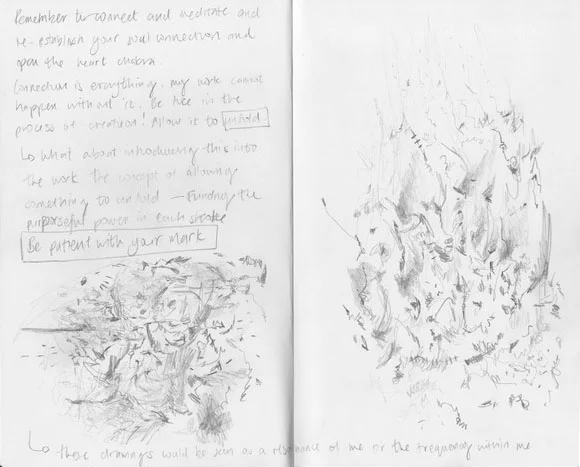 Remember to connect and meditate and
re-establish your soul connection and
open the heart chakra.
Connection is everything, my work cannot
happen without it. Be like in the
process of creation! Allow it to unfold
↳ What about introducing this into
the work the concept of allowing
something to unfold — Finding the
purposeful power in each stroke
Be patient with your mark
↳ these drawings would be seen as a resonance of me or the frequency within me